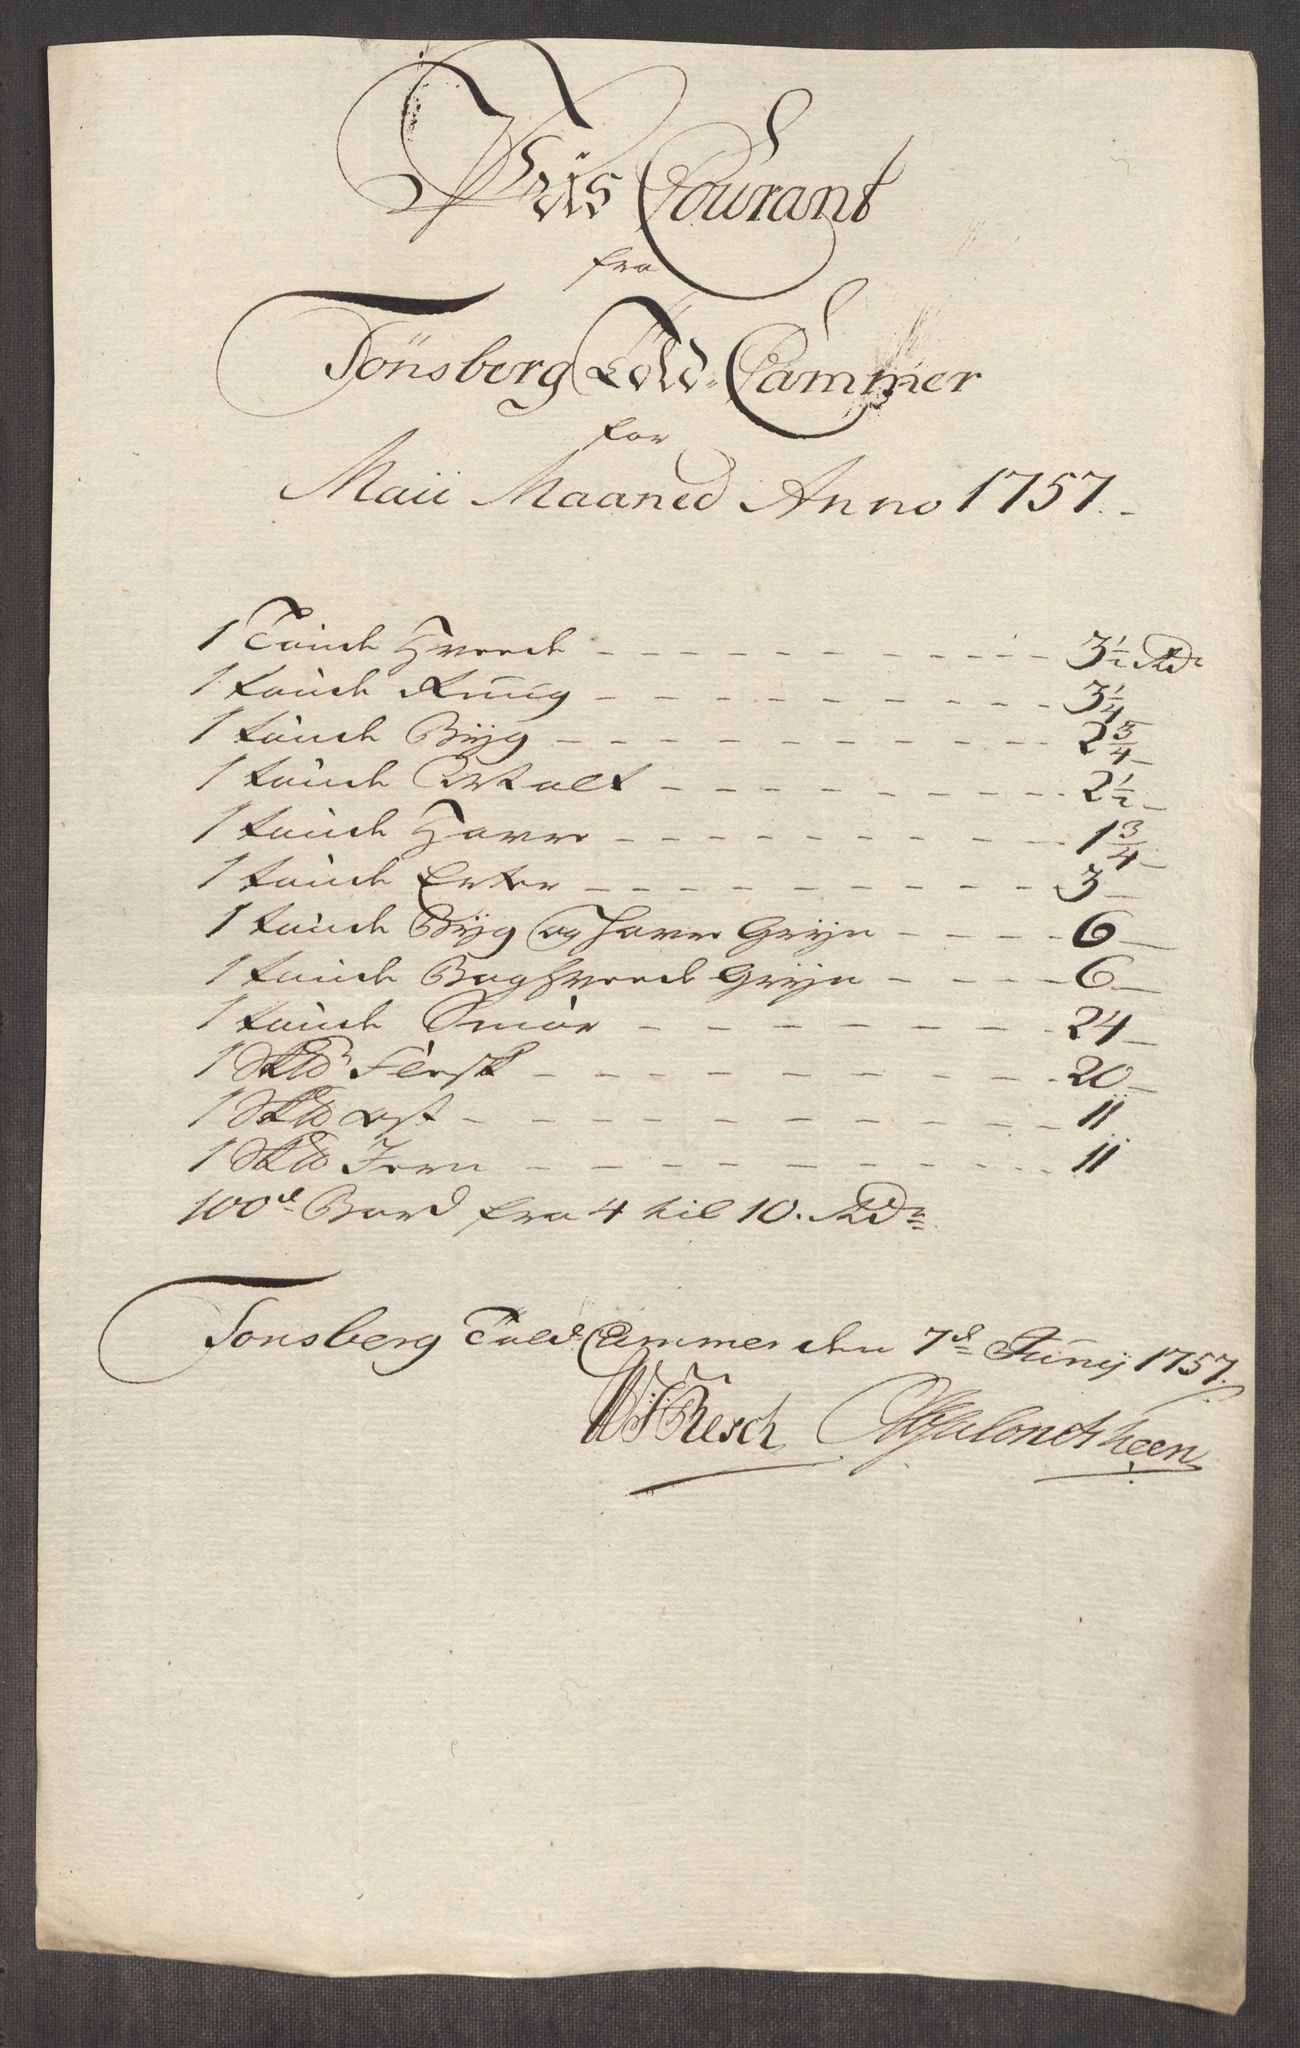 Priis Courant
fra
Tönsberg Told-Cammer
for
Maii Maaned Anno 1757.
1 Tønde Hvede - - - 3 1/2 Rdr
1 tønde Rug - - - 3 1/4
1 tønde Byg - - - 2 3/4
1 tønde Malt - - - 2 1/2
1 tønde Havre - - - 1 3/4
1 tønde Erter - - - 3
1 tønde Byg og Havre Gryn - - - 6
1 tønde Boghvede Gryn - - - 6
1 tønde Smør - - - 24
1 Skd Flesk - - - 20
1 Skd Ost - - - 11
1 Skd Jern - - - 11
100de Bord fra 4 til 10. Rdr
Tonsberg Told Cammer den 7de Junij 1757.
Resch